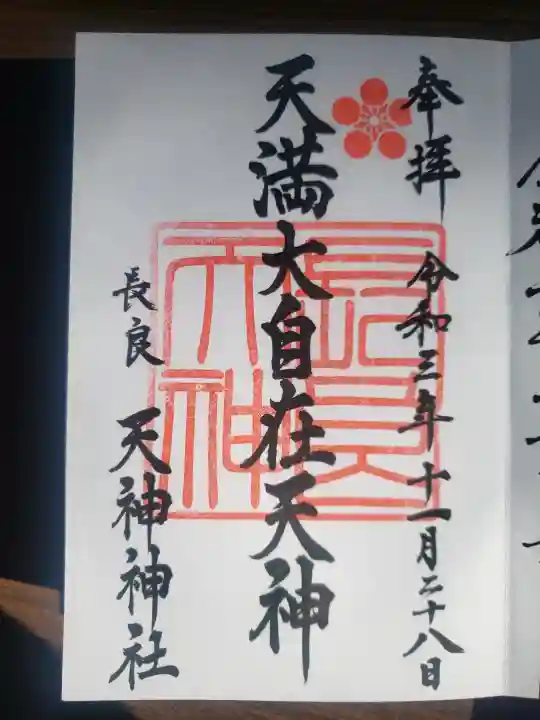 奉拝
令和三年十一月二十八日
天満大自在天神
長良
天神神社